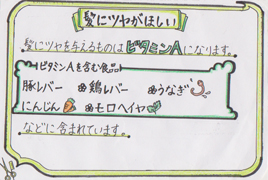 髪にツヤがほしい
髪にツヤを与えるものはビタミンAになります。
ビタミンAを含む食品
豚レバー ※鶏レバー ※うなぎ
にんじん ※モロヘイヤ
などに含まれています。